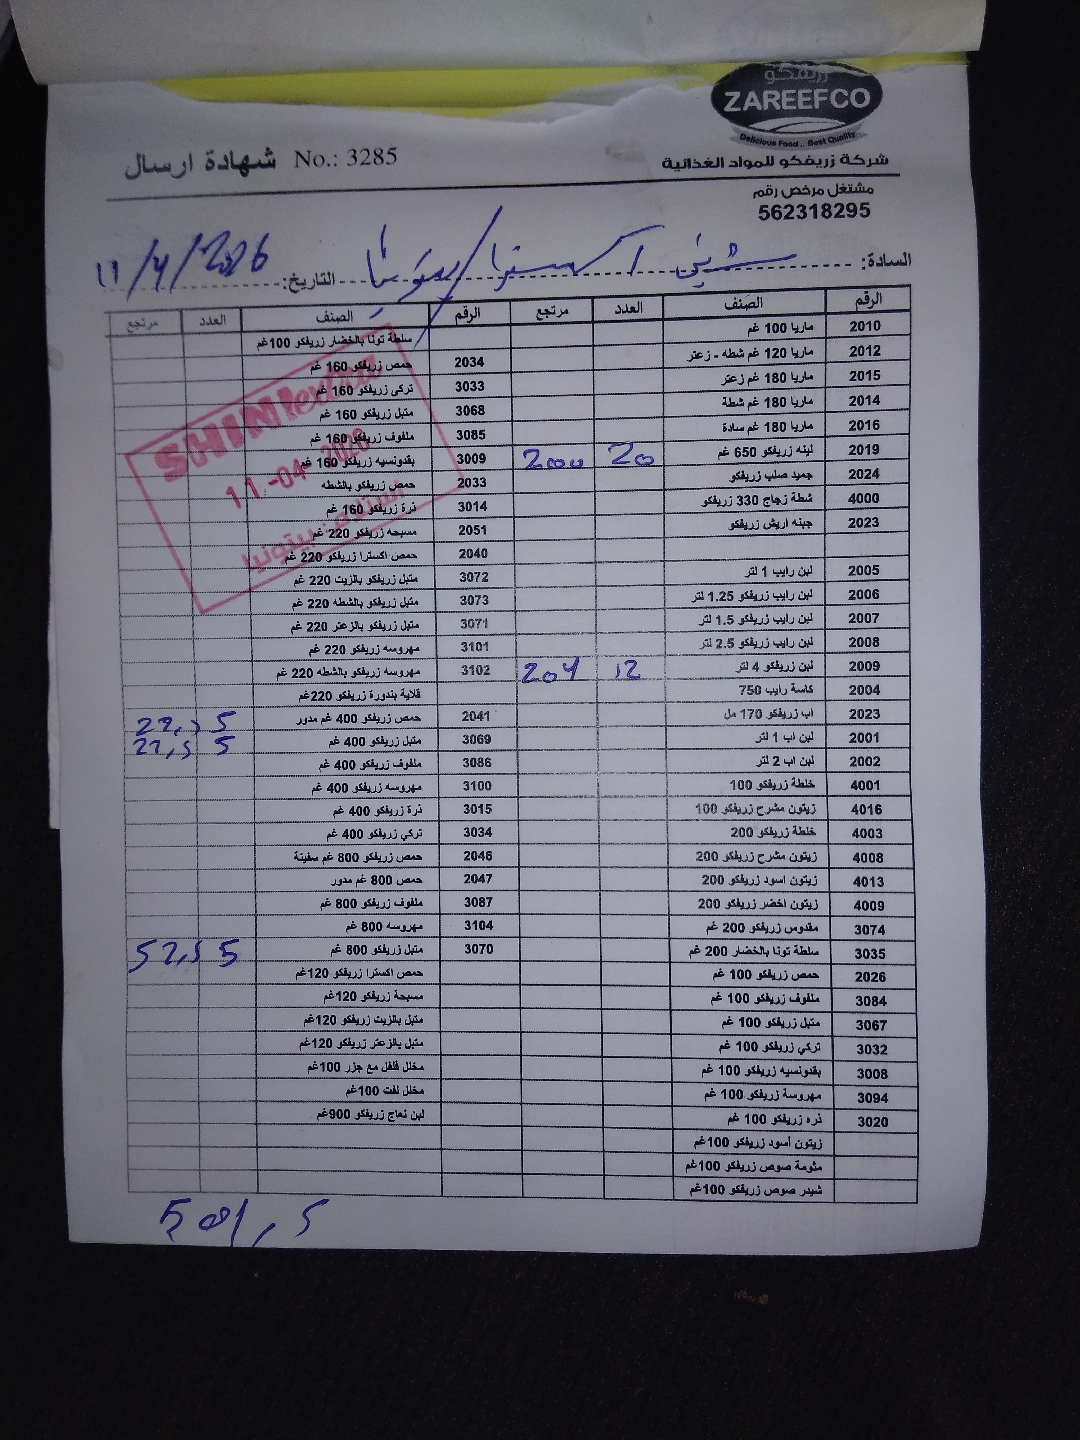 زريفكو
ZAREEFCO
Delicious Food .. Best Quality
شهادة ارسال No.: 3285
شركة زريفكو للمواد الغذائية
مشتغل مرخص رقم
562318295
السادة: شيني اكسترا / بيتونيا التاريخ: 11/4/2026
الرقم الصنف العدد مرتجع الرقم الصنف العدد مرتجع
2010 ماريا 100 غم سلطة تونا بالخضار زريفكو 100غم
2012 ماريا 120 غم شطه - زعتر 2034 حمص زريفكو 160 غم
2015 ماريا 180 غم زعتر 3033 تركي زريفكو 160 غم
2014 ماريا 180 غم شطة 3068 متبل زريفكو 160 غم
2016 ماريا 180 غم سادة 3085 ملفوف زريفكو 160 غم
2019 لبنه زريفكو 650 غم 20 200 3009 بقدونسيه زريفكو 160 غم
2024 جميد صلب زريفكو 2033 حمص زريفكو بالشطه
4000 شطة زجاج 330 زريفكو 3014 ذرة زريفكو 160 غم
2023 جبنه اريش زريفكو 2051 مسبحه زريفكو 220 غم
2040 حمص اكسترا زريفكو 220 غم
2005 لبن رايب 1 لتر 3072 متبل زريفكو بالزيت 220 غم
2006 لبن رايب زريفكو 1.25 لتر 3073 متبل زريفكو بالشطه 220 غم
2007 لبن رايب زريفكو 1.5 لتر 3071 متبل زريفكو بالزعتر 220 غم
2008 لبن رايب زريفكو 2.5 لتر 3101 مهروسه زريفكو 220 غم
2009 لبن زريفكو 4 لتر 12 204 3102 مهروسه زريفكو بالشطه 220 غم
2004 كاسة رايب 750 قلاية بندورة زريفكو 220غم
2023 اب زريفكو 170 مل 2041 حمص زريفكو 400 غم مدور 5 22,5
2001 لبن اب 1 لتر 3069 متبل زريفكو 400 غم 5 22,5
2002 لبن اب 2 لتر 3086 ملفوف زريفكو 400 غم
4001 خلطة زريفكو 100 3100 مهروسه زريفكو 400 غم
4016 زيتون مشرح زريفكو 100 3015 ذرة زريفكو 400 غم
4003 خلطة زريفكو 200 3034 تركي زريفكو 400 غم
4008 زيتون مشرح زريفكو 200 2046 حمص زريفكو 800 غم سفينة
4013 زيتون اسود زريفكو 200 2047 حمص 800 غم مدور
4009 زيتون اخضر زريفكو 200 3087 ملفوف زريفكو 800 غم
3074 مقدوس زريفكو 200 غم 3104 مهروسه 800 غم
3035 سلطة تونا بالخضار 200 غم 3070 متبل زريفكو 800 غم 5 52,5
2026 حمص زريفكو 100 غم حمص اكسترا زريفكو 120غم
3084 ملفوف زريفكو 100 غم مسبحة زريفكو 120غم
3067 متبل زريفكو 100 غم متبل بالزيت زريفكو 120غم
3032 تركي زريفكو 100 غم متبل بالزعتر زريفكو 120غم
3008 بقدونسيه زريفكو 100 غم مخلل فلفل مع جزر 100غم
3094 مهروسة زريفكو 100 غم مخلل لفت 100غم
3020 ذره زريفكو 100 غم لبن نعاج زريفكو 900غم
زيتون أسود زريفكو 100غم
مثومة صوص زريفكو 100غم
شيدر صوص زريفكو 100غم
501,5
SHINI extra
11-04-2026
بيتونيا